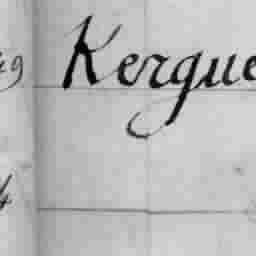 49 Kergue
4